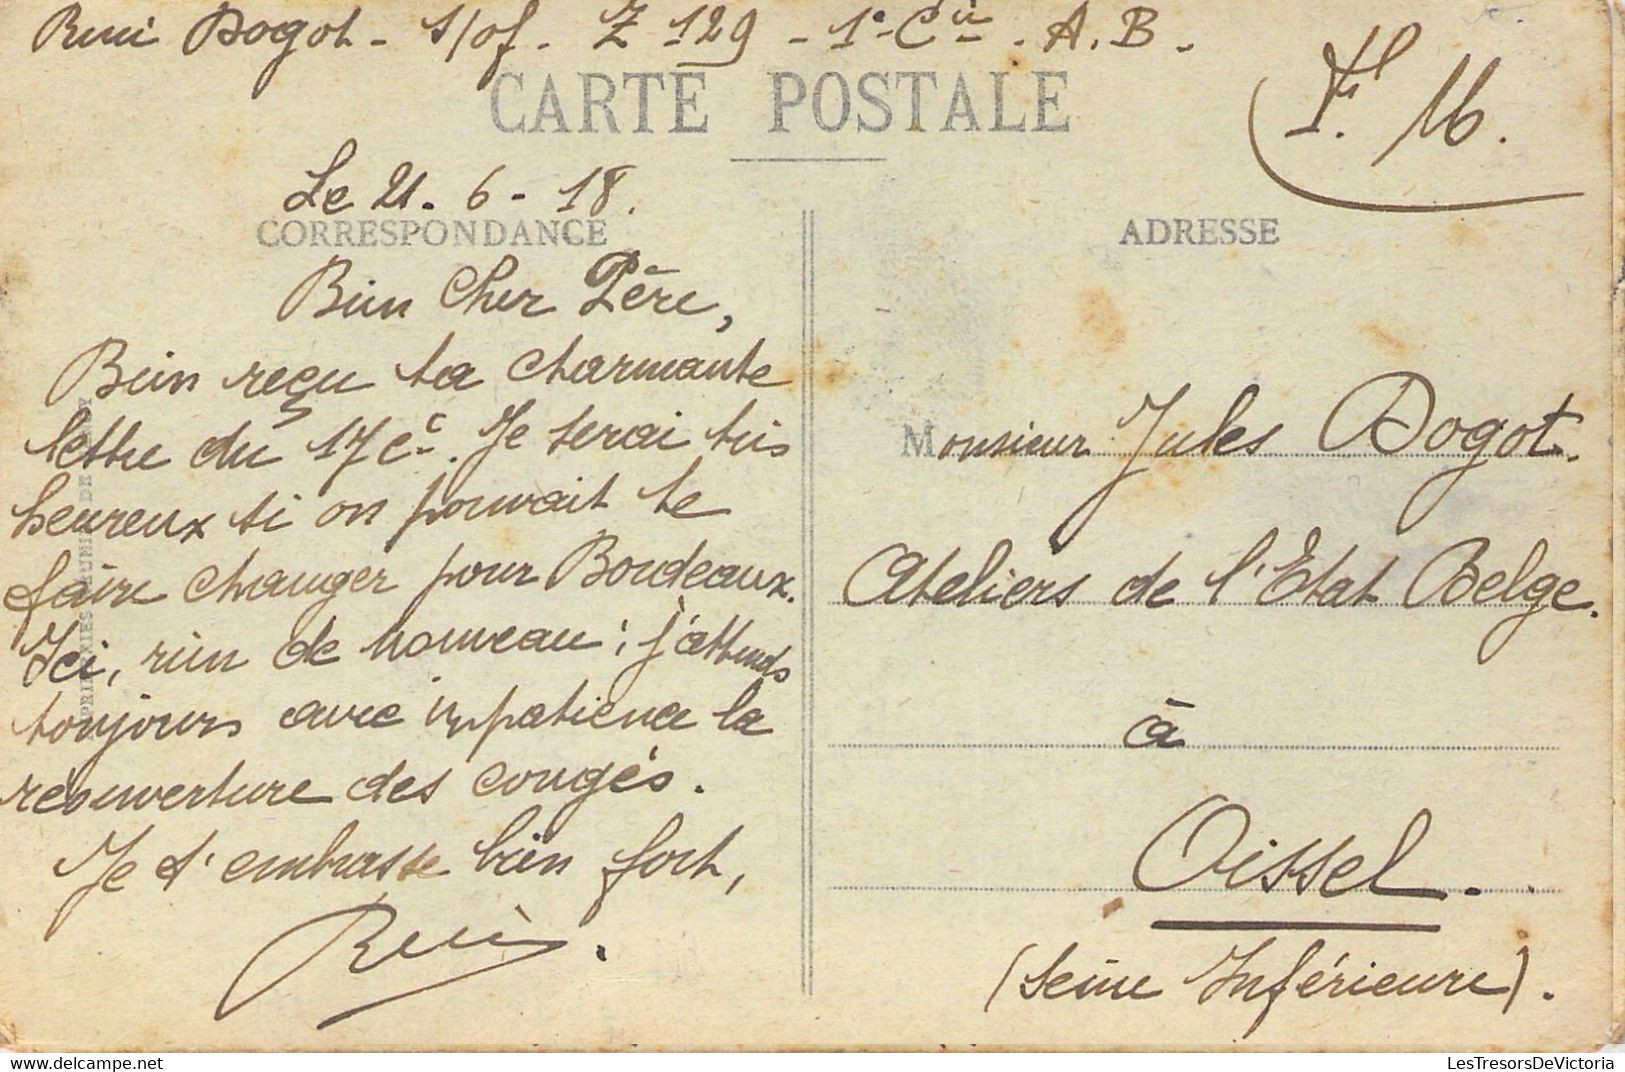 René Dogot - S/of. Z 129 - 1e Cie - A.B.
CARTE POSTALE
F. 16.
Le 21-6-18.
CORRESPONDANCE
Bien Cher Père,
Bien reçu ta charmante
lettre du 17 ct. Je serai très
heureux si on pouvait te
faire changer pour Bordeaux.
Ici, rien de nouveau; j'attends
toujours avec impatience la
réouverture des congés.
Je t'embrasse bien fort,
René.
ADRESSE
Monsieur Jules Dogot.
Ateliers de l'Etat Belge.
à
Oissel.
(Seine Inférieure).
LesTresorsDeVictoria